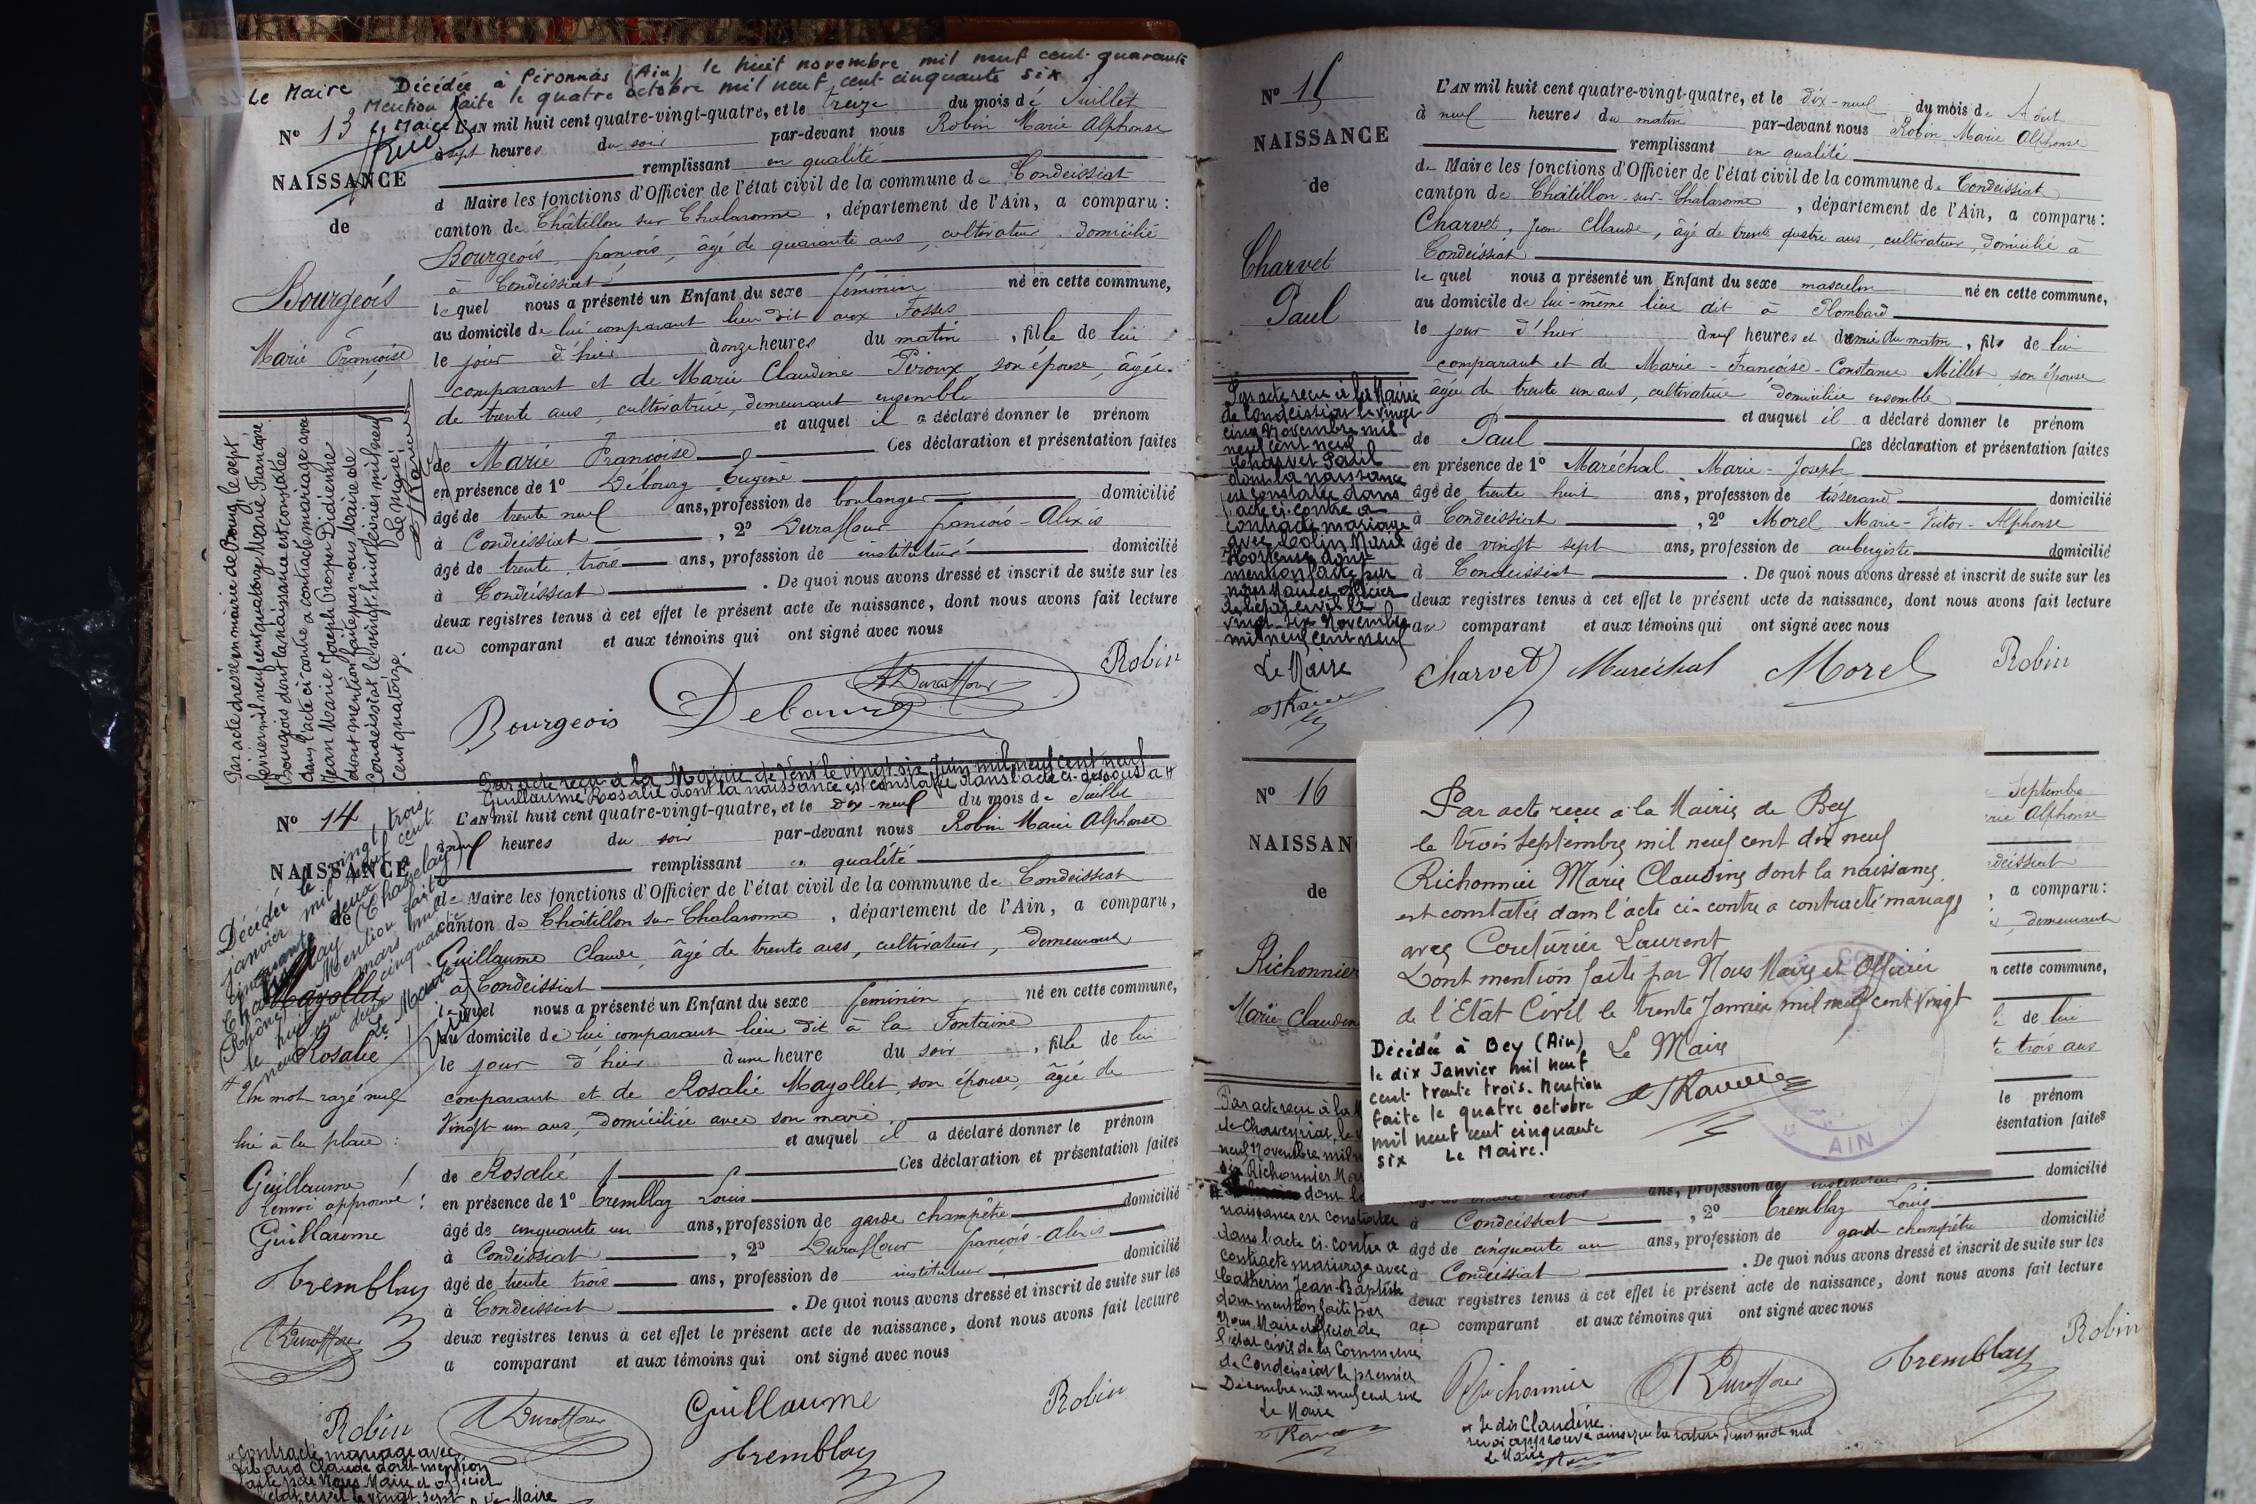 Le Maire Décédée à Péronnas (Ain) le huit novembre mil neuf cent quarante
Mention faite le quatre octobre mil neuf cent cinquante six
Le Maire
N° 13
NAISSANCE
de
Bourgeois
Marie Françoise
L'AN mil huit cent quatre-vingt-quatre, et le treize du mois de Juillet
à sept heures du soir par-devant nous Robin Marie Alphonse
remplissant en qualité
d Maire les fonctions d'Officier de l'état civil de la commune de Condeissiat
canton de Châtillon sur Chalaronne, département de l'Ain, a comparu :
Bourgeois, françois, âgé de quarante ans, cultivateur domicilié
à Condeissiat
le quel nous a présenté un Enfant du sexe féminin né en cette commune,
au domicile de lui comparant lieu dit aux Fosses
le jour d'hier à onze heures du matin, fille de lui
comparant et de Marie Claudine Piroux, son épouse, âgée
de trente ans, cultivatrice, demeurant ensemble
et auquel il a déclaré donner le prénom
de Marie Françoise Ces déclaration et présentation faites
en présence de 1° Débourg Eugène
âgé de trente neuf ans, profession de boulanger domicilié
à Condeissiat, 2° Duraffour françois-Alexis
âgé de trente trois ans, profession de instituteur domicilié
à Condeissiat. De quoi nous avons dressé et inscrit de suite sur les
deux registres tenus à cet effet le présent acte de naissance, dont nous avons fait lecture
au comparant et aux témoins qui ont signé avec nous
Robin
ADuraffour
Bourgeois Debourg
Par acte dressé en mairie de Bourg, le sept
février mil neuf cent quatorze Marie Françoise
Bourgeois dont la naissance est constatée
dans l'acte ci-contre a contracté mariage avec
Jean Marie Joseph Prosper Didienne
dont mention faite par nous Maire de
Condeissiat le vingt huit février mil neuf
cent quatorze. Le Maire.
Par acte reçu à la Mairie de Vent le vingt six Juin mil neuf cent neuf
Guillaume Rosalie dont la naissance est constatée dans l'acte ci-dessous a #
N° 14
NAISSANCE
de
Mayollet
Rosalie
Décédée le vingt trois
janvier mil neuf cent
cinquante deux à
Chazelay (Chazelay)
(Rhône) Mention faite
le huit mars mil
neuf cent cinquante
deux Le Maire
Un mot rayé nul
lui à la place :
Guillaume !
l'envoi approuvé :
Guillaume
Tremblay
ADuraffour
L'AN mil huit cent quatre-vingt-quatre, et le dix-neuf du mois de Juillet
à neuf heures du soir par-devant nous Robin Marie Alphonse
remplissant en qualité
de Maire les fonctions d'Officier de l'état civil de la commune de Condeissiat
canton de Châtillon sur Chalaronne, département de l'Ain, a comparu,
Guillaume Claude, âgé de trente ans, cultivateur, demeurant
à Condeissiat
le quel nous a présenté un Enfant du sexe féminin né en cette commune,
au domicile de lui comparant lieu dit à la Fontaine
le jour d'hier à une heure du soir, fille de lui
comparant et de Rosalie Mayollet, son épouse, âgée de
vingt un ans, domiciliée avec son mari
et auquel il a déclaré donner le prénom
de Rosalie Ces déclaration et présentation faites
en présence de 1° Tremblay Louis domicilié
âgé de cinquante un ans, profession de garde champêtre
à Condeissiat, 2° Duraffour françois-Alexis
âgé de trente trois ans, profession de instituteur domicilié
à Condeissiat. De quoi nous avons dressé et inscrit de suite sur les
deux registres tenus à cet effet le présent acte de naissance, dont nous avons fait lecture
a comparant et aux témoins qui ont signé avec nous
Robin ADuraffour Guillaume Robin
Tremblay
contracté mariage avec
Claude dont mention
faite par Nous Maire et officier
état civil le vingt sept
Le Maire
N° 15
NAISSANCE
de
Charvet
Paul
L'AN mil huit cent quatre-vingt-quatre, et le dix-neuf du mois de Août
à neuf heures du matin par-devant nous Robin Marie Alphonse
remplissant en qualité
de Maire les fonctions d'Officier de l'état civil de la commune de Condeissiat
canton de Châtillon-sur-Chalaronne, département de l'Ain, a comparu :
Charvet, Jean Claude, âgé de trente quatre ans, cultivateur, domicilié à
Condeissiat
le quel nous a présenté un Enfant du sexe masculin né en cette commune,
au domicile de lui-même lieu dit à Plombard
le jour d'hier à neuf heures et demie du matin, fils de lui
comparant et de Marie-Françoise-Constance Millet son épouse
âgée de trente un ans, cultivatrice domiciliée ensemble
et auquel il a déclaré donner le prénom
de Paul Ces déclaration et présentation faites
en présence de 1° Maréchal Marie-Joseph
âgé de trente huit ans, profession de tisserand domicilié
à Condeissiat, 2° Morel Marie-Victor-Alphonse
âgé de vingt sept ans, profession de aubergiste domicilié
à Condeissiat. De quoi nous avons dressé et inscrit de suite sur les
deux registres tenus à cet effet le présent acte de naissance, dont nous avons fait lecture
au comparant et aux témoins qui ont signé avec nous
Charvet Maréchal Morel Robin
Par acte reçu à la Mairie
de Condeissiat le vingt
cinq Novembre mil
neuf cent neuf
Charvet Paul
dont la naissance
est constatée dans
l'acte ci-contre a
contracté mariage
avec Colin Marie
Hortense dont
mention faite par
nous Maire et officier
de l'état civil le
vingt-six Novembre
mil neuf cent neuf
Le Maire
N° 16
NAISSAN
de
Richonnier
Marie Claudin
Septembre
rie Alphonse
ndeissiat
, a comparu :
, demeurant
n cette commune,
de lui
te trois ans
le prénom
ésentation faites
domicilié
Par acte reçu à la Mairie de Bey
le trois Septembre mil neuf cent dix neuf
Richonnier Marie Claudine dont la naissance
est constatée dans l'acte ci-contre a contracté mariage
avec Couturier Laurent
Dont mention faite par Nous Maire et Officier
de l'Etat Civil le trente Janvier mil neuf cent vingt
Le Maire
Décédée à Bey (Ain)
le dix Janvier mil neuf
cent trente trois. Mention
faite le quatre octobre
mil neuf cent cinquante
six Le Maire.
AIN
ans, profession de instituteur
à Condeissiat, 2° Tremblay Louis
âgé de cinquante un ans, profession de garde champêtre domicilié
à Condeissiat. De quoi nous avons dressé et inscrit de suite sur les
deux registres tenus à cet effet le présent acte de naissance, dont nous avons fait lecture
au comparant et aux témoins qui ont signé avec nous
Richonnier ADuraffour Tremblay Robin
Par acte reçu à la M
de Chaveyriat, le v
neuf Novembre mil n
six Richonnier Mar
dont la
naissance est constatée
dans l'acte ci-contre a
contracté mariage avec
Catherin Jean-Baptiste
dont mention faite par
nous Maire et officier de
l'état civil de la Commune
de Condeissiat le premier
Décembre mil neuf cent six
Le Maire
# Je dis Claudine.
renvoi approuvé ainsi que la rature d'un mot nul
Le Maire